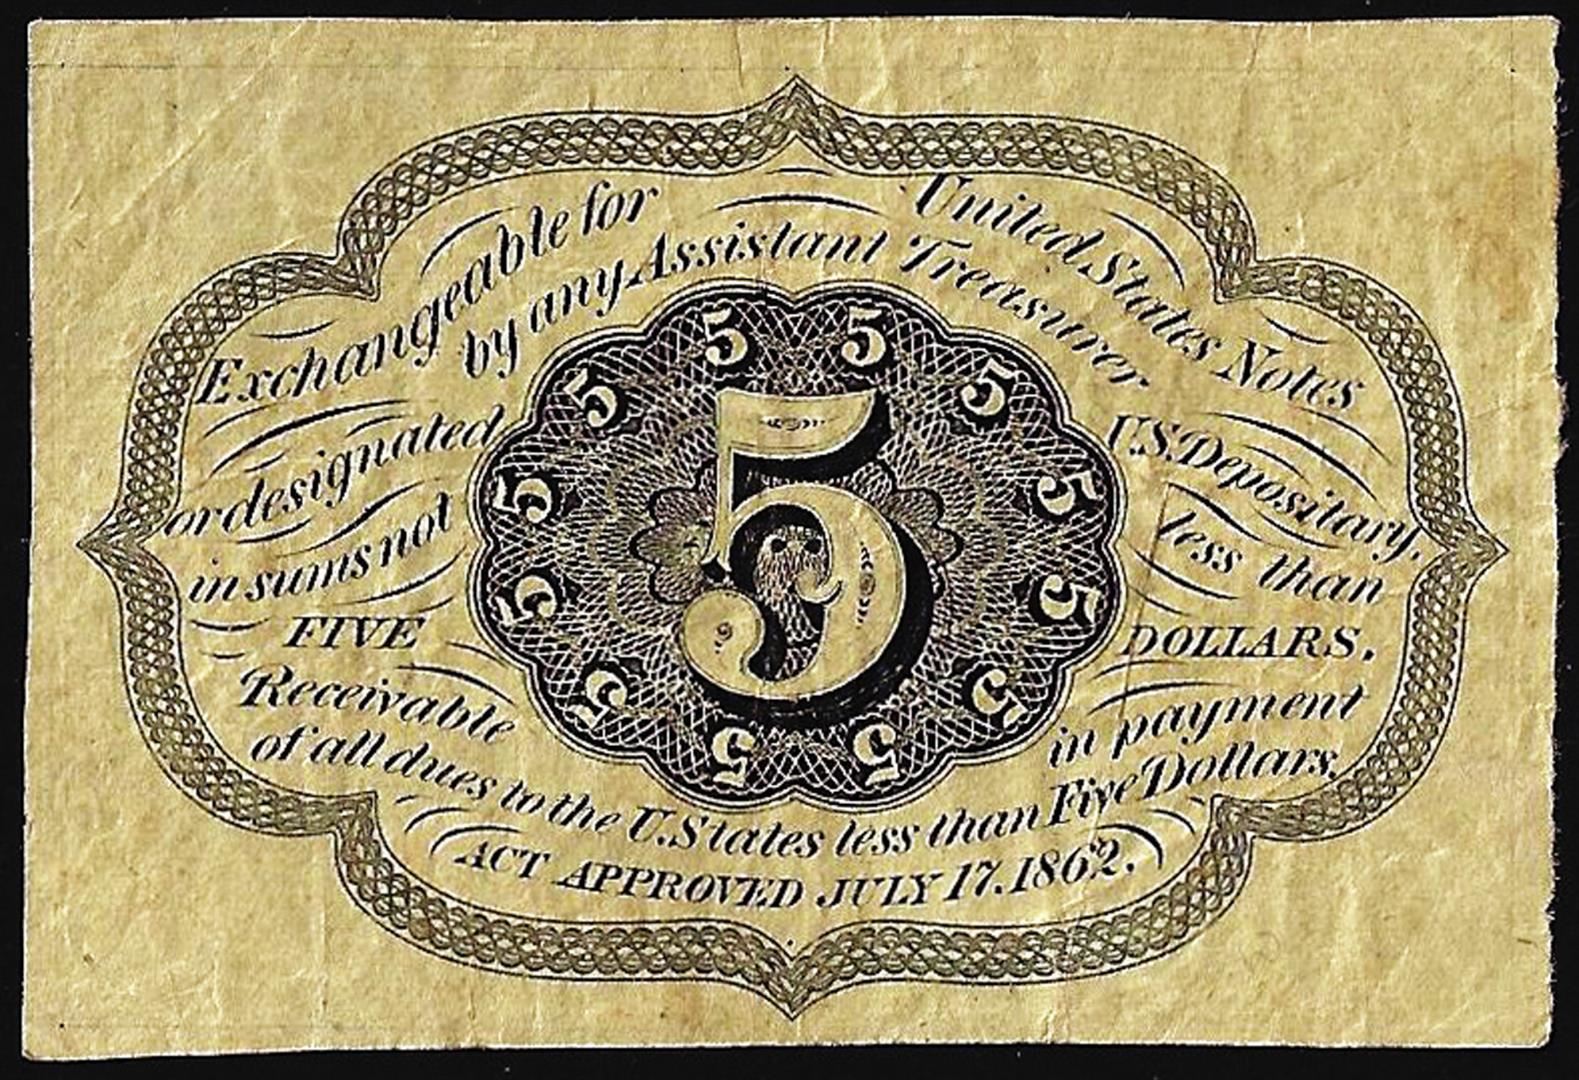 Exchangeable for United States Notes
by any Assistant Treasurer
or designated U.S. Depositary,
in sums not less than
FIVE DOLLARS.
Receivable in payment
of all dues to the U. States less than Five Dollars.
ACT APPROVED JULY 17. 1862.
5
5
5
5
5
5
5
5
5
5
5
5
5